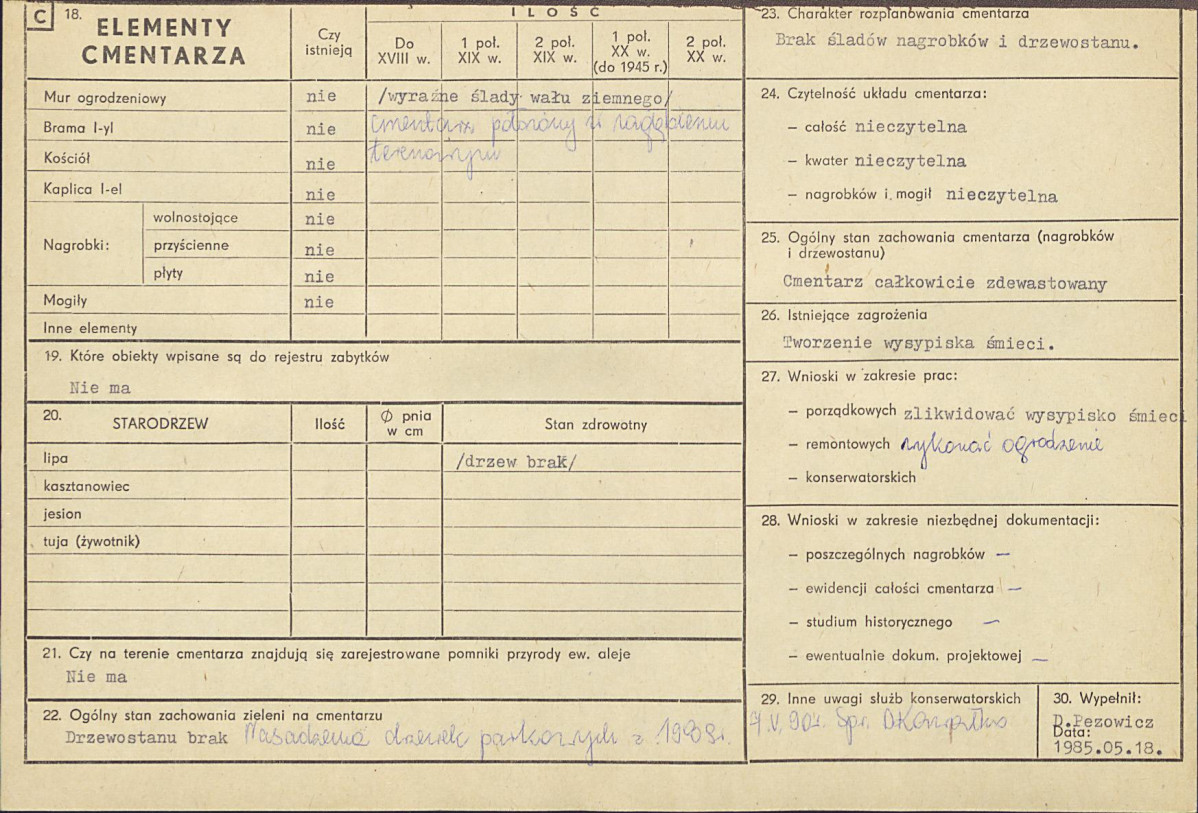 C 18. ELEMENTY CMENTARZA
Czy istnieją
ILOŚĆ
Do XVIII w.
1 poł. XIX w.
2 poł. XIX w.
1 poł. XX w. (do 1945 r.)
2 poł. XX w.
Mur ogrodzeniowy nie /wyraźne ślady wału ziemnego/
Brama I-yl nie cmentarz położony w
Kościół nie terenowym
Kaplica I-el nie
Nagrobki: wolnostojące nie
przyścienne nie
płyty nie
Mogiły nie
Inne elementy
19. Które obiekty wpisane są do rejestru zabytków
Nie ma
20. STARODRZEW Ilość Ø pnia w cm Stan zdrowotny
lipa /drzew brak/
kasztanowiec
jesion
tuja (żywotnik)
21. Czy na terenie cmentarza znajdują się zarejestrowane pomniki przyrody ew. aleje
Nie ma
22. Ogólny stan zachowania zieleni na cmentarzu
Drzewostanu brak Nasadzenia drzew parkowych z
23. Charakter rozplanowania cmentarza
Brak śladów nagrobków i drzewostanu.
24. Czytelność układu cmentarza:
– całość nieczytelna
– kwater nieczytelna
– nagrobków i mogił nieczytelna
25. Ogólny stan zachowania cmentarza (nagrobków
i drzewostanu)
Cmentarz całkowicie zdewastowany
26. Istniejące zagrożenia
Tworzenie wysypiska śmieci.
27. Wnioski w zakresie prac:
– porządkowych zlikwidować wysypisko śmieci
– remontowych wykonać ogrodzenie
– konserwatorskich
28. Wnioski w zakresie niezbędnej dokumentacji:
– poszczególnych nagrobków —
– ewidencji całości cmentarza —
– studium historycznego —
– ewentualnie dokum. projektowej —
29. Inne uwagi służb konserwatorskich
Spr.
30. Wypełnił:
D.Pezowicz
Data:
1985.05.18.